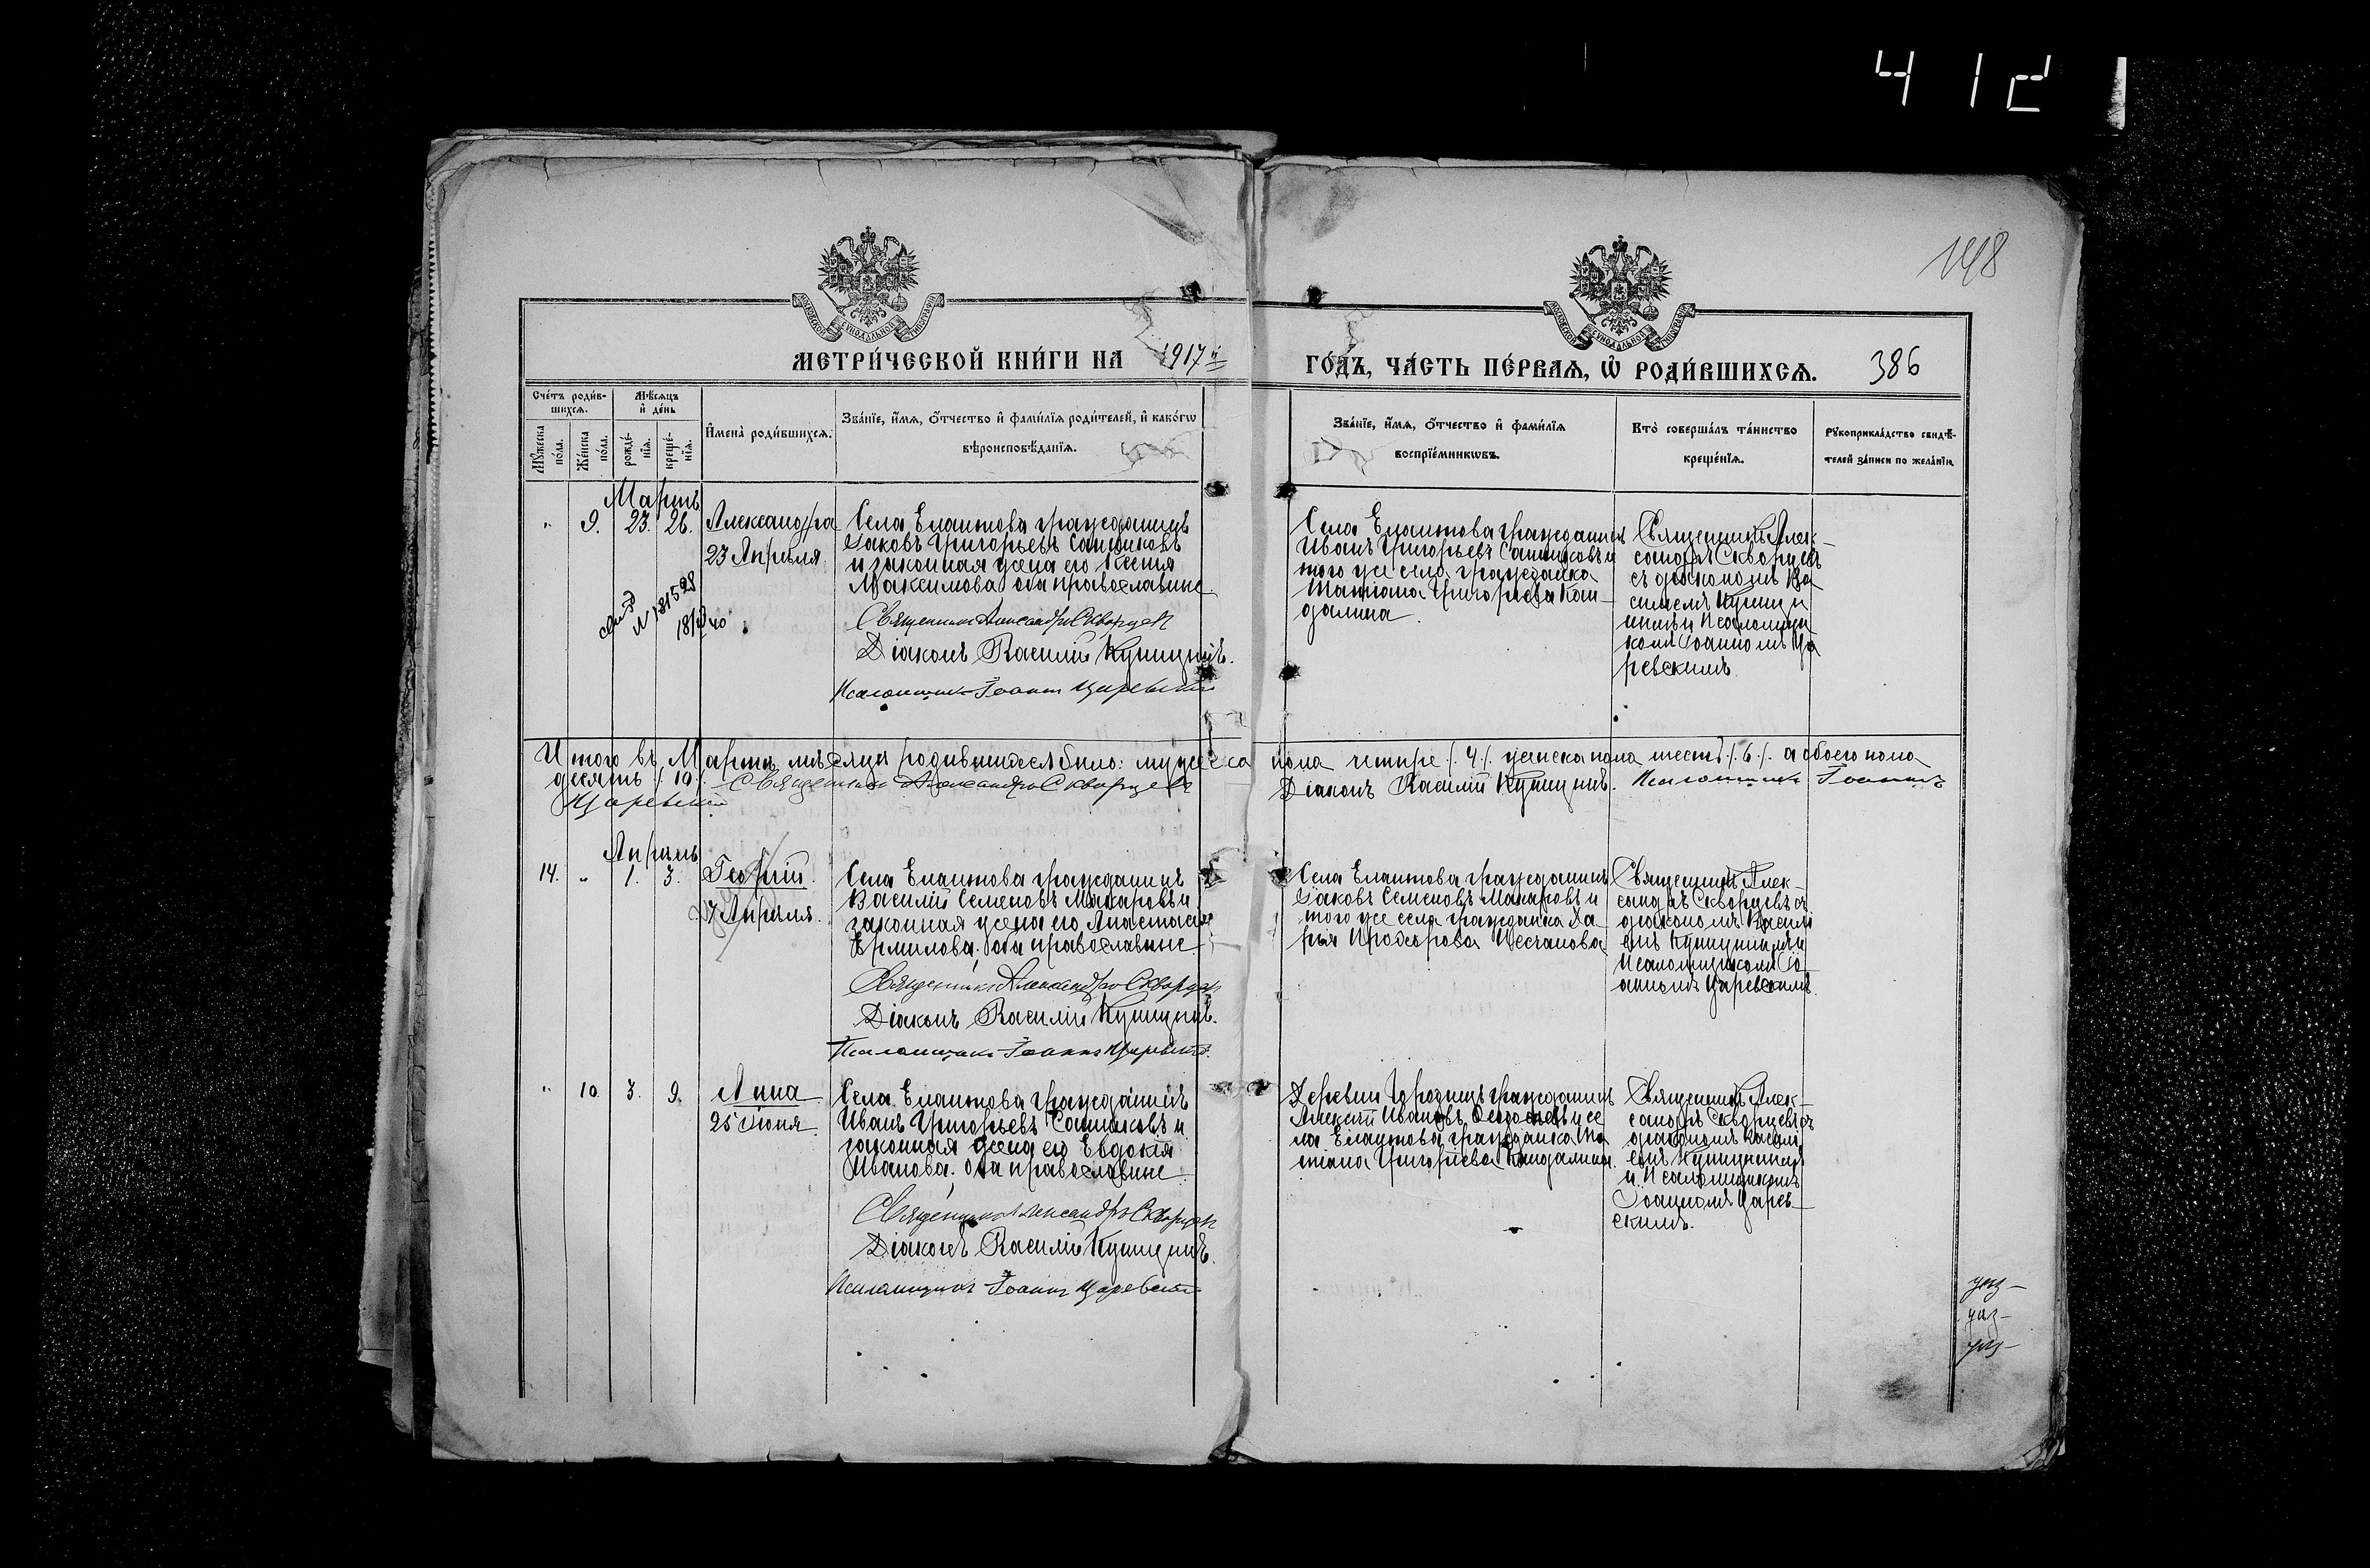 412
148
МЕТРИ́ЧЕСКОЙ КНИ́ГИ НА 1917й ГО́ДЪ, ЧА́СТЬ ПЕ́РВАѦ, Ѡ҆ РОДИ́ВШИХСѦ. 386
Сче́тъ роди́в-
шихсѧ.
Мѣ́сѧцъ
и҆ де́нь
Мꙋ́жеска по́ла.
Же́нска по́ла.
рожде́-нїѧ.
креще́-нїѧ.
И҆мена̀ роди́вшихсѧ.
Зва́нїе, и҆́мѧ, ѻ҆́тчество и҆ фами́лїѧ роди́телей, и҆ како́гѡ
вѣроисповѣ́данїѧ.
Зва́нїе, и҆́мѧ, ѻ҆́тчество и҆ фами́лїѧ
воспрїе́мникѡвъ.
Кто̀ соверша́лъ та́инство
креще́нїѧ.
Рꙋкоприкла́дство свидѣ́-
телей за́писи по жела́нїю.
Мартъ
" 9. 23. 26. Александра
23 Апрѣля
Села Елатова гражданинъ
Іаковъ Григорьевъ Санников
и законная жена его Ксенія
Максимова оба православные
Священникъ Александръ Скворцевъ
Діаконъ Василій Куницынъ.
Псаломщикъ Іоаннъ Царевскій
Села Елатова гражданинъ
Иванъ Григорьевъ Санниковъ и
того же села гражданка
Татіана Григорьева Кан-
далина.
Священникъ Алек-
сандръ Скворцевъ
съ діакономъ Ва
силіемъ Куницы
нымъ и Псаломщи
комъ Іоанномъ Ца
ревскимъ.
18/V 40
Итого въ Мартѣ мѣсяцѣ родившихся было: мужеска пола четыре /.4./. женска пола шесть /.6./. а обоего пола
десять /.10./. Священникъ Александръ Скворцевъ Діаконъ Василій Куницынъ. Псаломщикъ Іоаннъ
Царевскій.
Апрѣль
14. " 1. 3. Георгій.
Апрѣля.
Села Елатова гражданинъ
Василій Семеновъ Макаровъ и
законная жена его Анастасія
Ермилова. оба православные
Священникъ Александръ Скворцевъ
Діаконъ Василій Куницынъ.
Псаломщикъ Іоаннъ Царевскій.
Села Елатова гражданинъ
Іаковъ Семеновъ Макаровъ и
того же села гражданка Да-
рья Песчанова
Священникъ Алек-
сандръ Скворцевъ съ
діакономъ Василі
емъ Куницынымъ и
Псаломщикомъ Іо-
анномъ Царевскимъ.
" 10. 3. 9. Анна
25 Іюня.
Села Елатова гражданинъ
Иванъ Григорьевъ Санниковъ и
законная жена его Евдокія
Иванова. оба православные
Священникъ Александръ Скворцевъ
Діаконъ Василій Куницынъ.
Псаломщикъ Іоаннъ Царевскій
Деревни гражданинъ
Алексій Ивановъ и се
ла Елатова гражданка Та
тіана Григорьева Кандалина.
Священникъ Алек-
сандръ Скворцевъ съ
діакономъ Васили
емъ Куницынымъ
и Псаломщикомъ
Іоанномъ Царев-
скимъ.